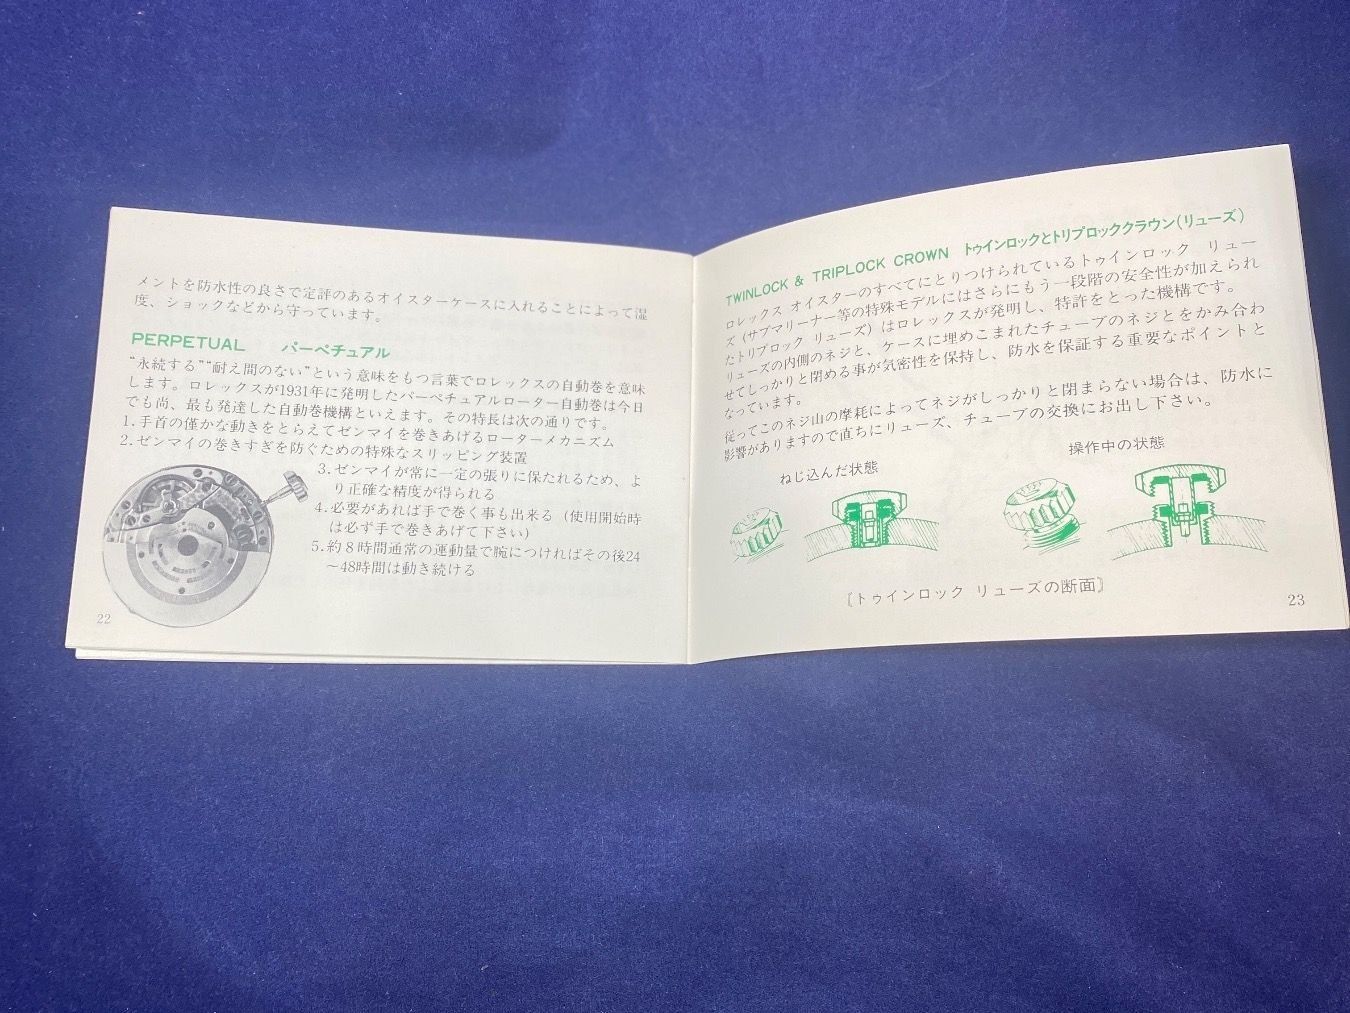 メントを防水性の良さで定評のあるオイスターケースに入れることによって湿
度、ショックなどから守っています。
PERPETUAL パーペチュアル
“永続する”“耐え間のない”という意味をもつ言葉でロレックスの自動巻を意味
します。ロレックスが1931年に発明したパーペチュアルローター自動巻は今日
でも尚、最も発達した自動巻機構といえます。その特長は次の通りです。
1.手首の僅かな動きをとらえてゼンマイを巻きあげるローターメカニズム
2.ゼンマイの巻きすぎを防ぐための特殊なスリッピング装置
3.ゼンマイが常に一定の張りに保たれるため、よ
り正確な精度が得られる
4.必要があれば手で巻く事も出来る（使用開始時
は必ず手で巻きあげて下さい）
5.約8時間通常の運動量で腕につければその後24
～48時間は動き続ける
22
TWINLOCK & TRIPLOCK CROWN トゥインロックとトリプロッククラウン(リューズ)
ロレックス オイスターのすべてにとりつけられているトゥインロック リュー
ズ（サブマリーナー等の特殊モデルにはさらにもう一段階の安全性が加えられ
たトリプロック リューズ）はロレックスが発明し、特許をとった機構です。
リューズの内側のネジと、ケースに埋めこまれたチューブのネジとをかみ合わ
せてしっかりと閉める事が気密性を保持し、防水を保証する重要なポイントと
なっています。
従ってこのネジ山の摩耗によってネジがしっかりと閉まらない場合は、防水に
影響がありますので直ちにリューズ、チューブの交換にお出し下さい。
ねじ込んだ状態
操作中の状態
〔トゥインロック リューズの断面〕
23